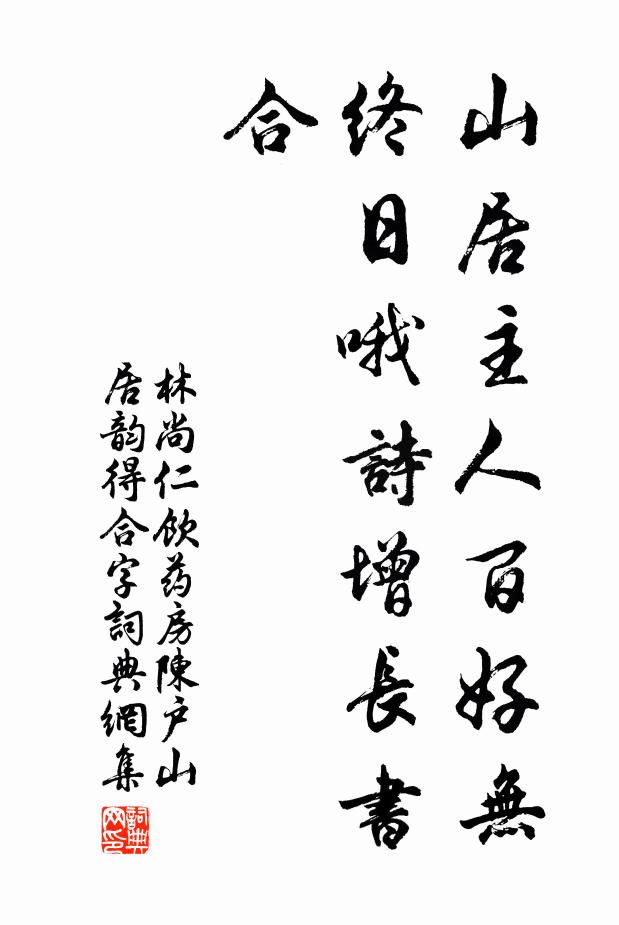 山居主人百好無
終日哦詩增長書
合
林尚仁飲药房陳户山
居韵得合字詞典網集
詞典
网印